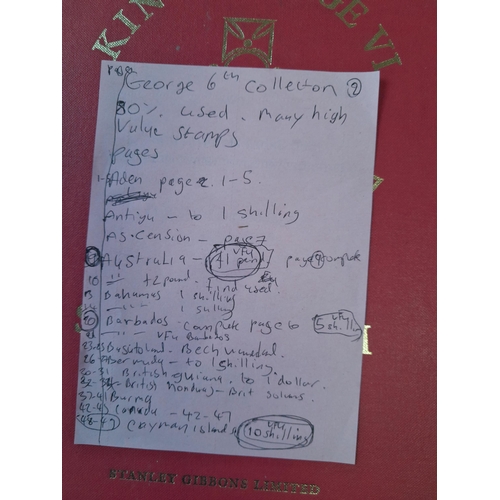 KING GEORGE VI
Page
George 6th Collecton 2
80% used. many high
Value Stamps
pages
1-5 Aden page 1-5.
Antigu - to 1 shilling
AS-Cension - page 7
9 Australia - £1 pound VFU page 9 complete
10 " £2 pound - find used.
13 Bahamas 1 shilling
14 " 1 shilling
20 Barbados - complete page 6 VFU 5 shilling
21 " VFU Barbados
Basutoland. Bechuanaland.
26 Bermuda - to 1 shilling.
30-31 British guiana. to 1 dollar.
32- British Honduras - Brit Solomns.
37-41 Burma
42-47 Canada - 42-47
48-49 Cayman Islands VFU 10 shilling
STANLEY GIBBONS LIMITED